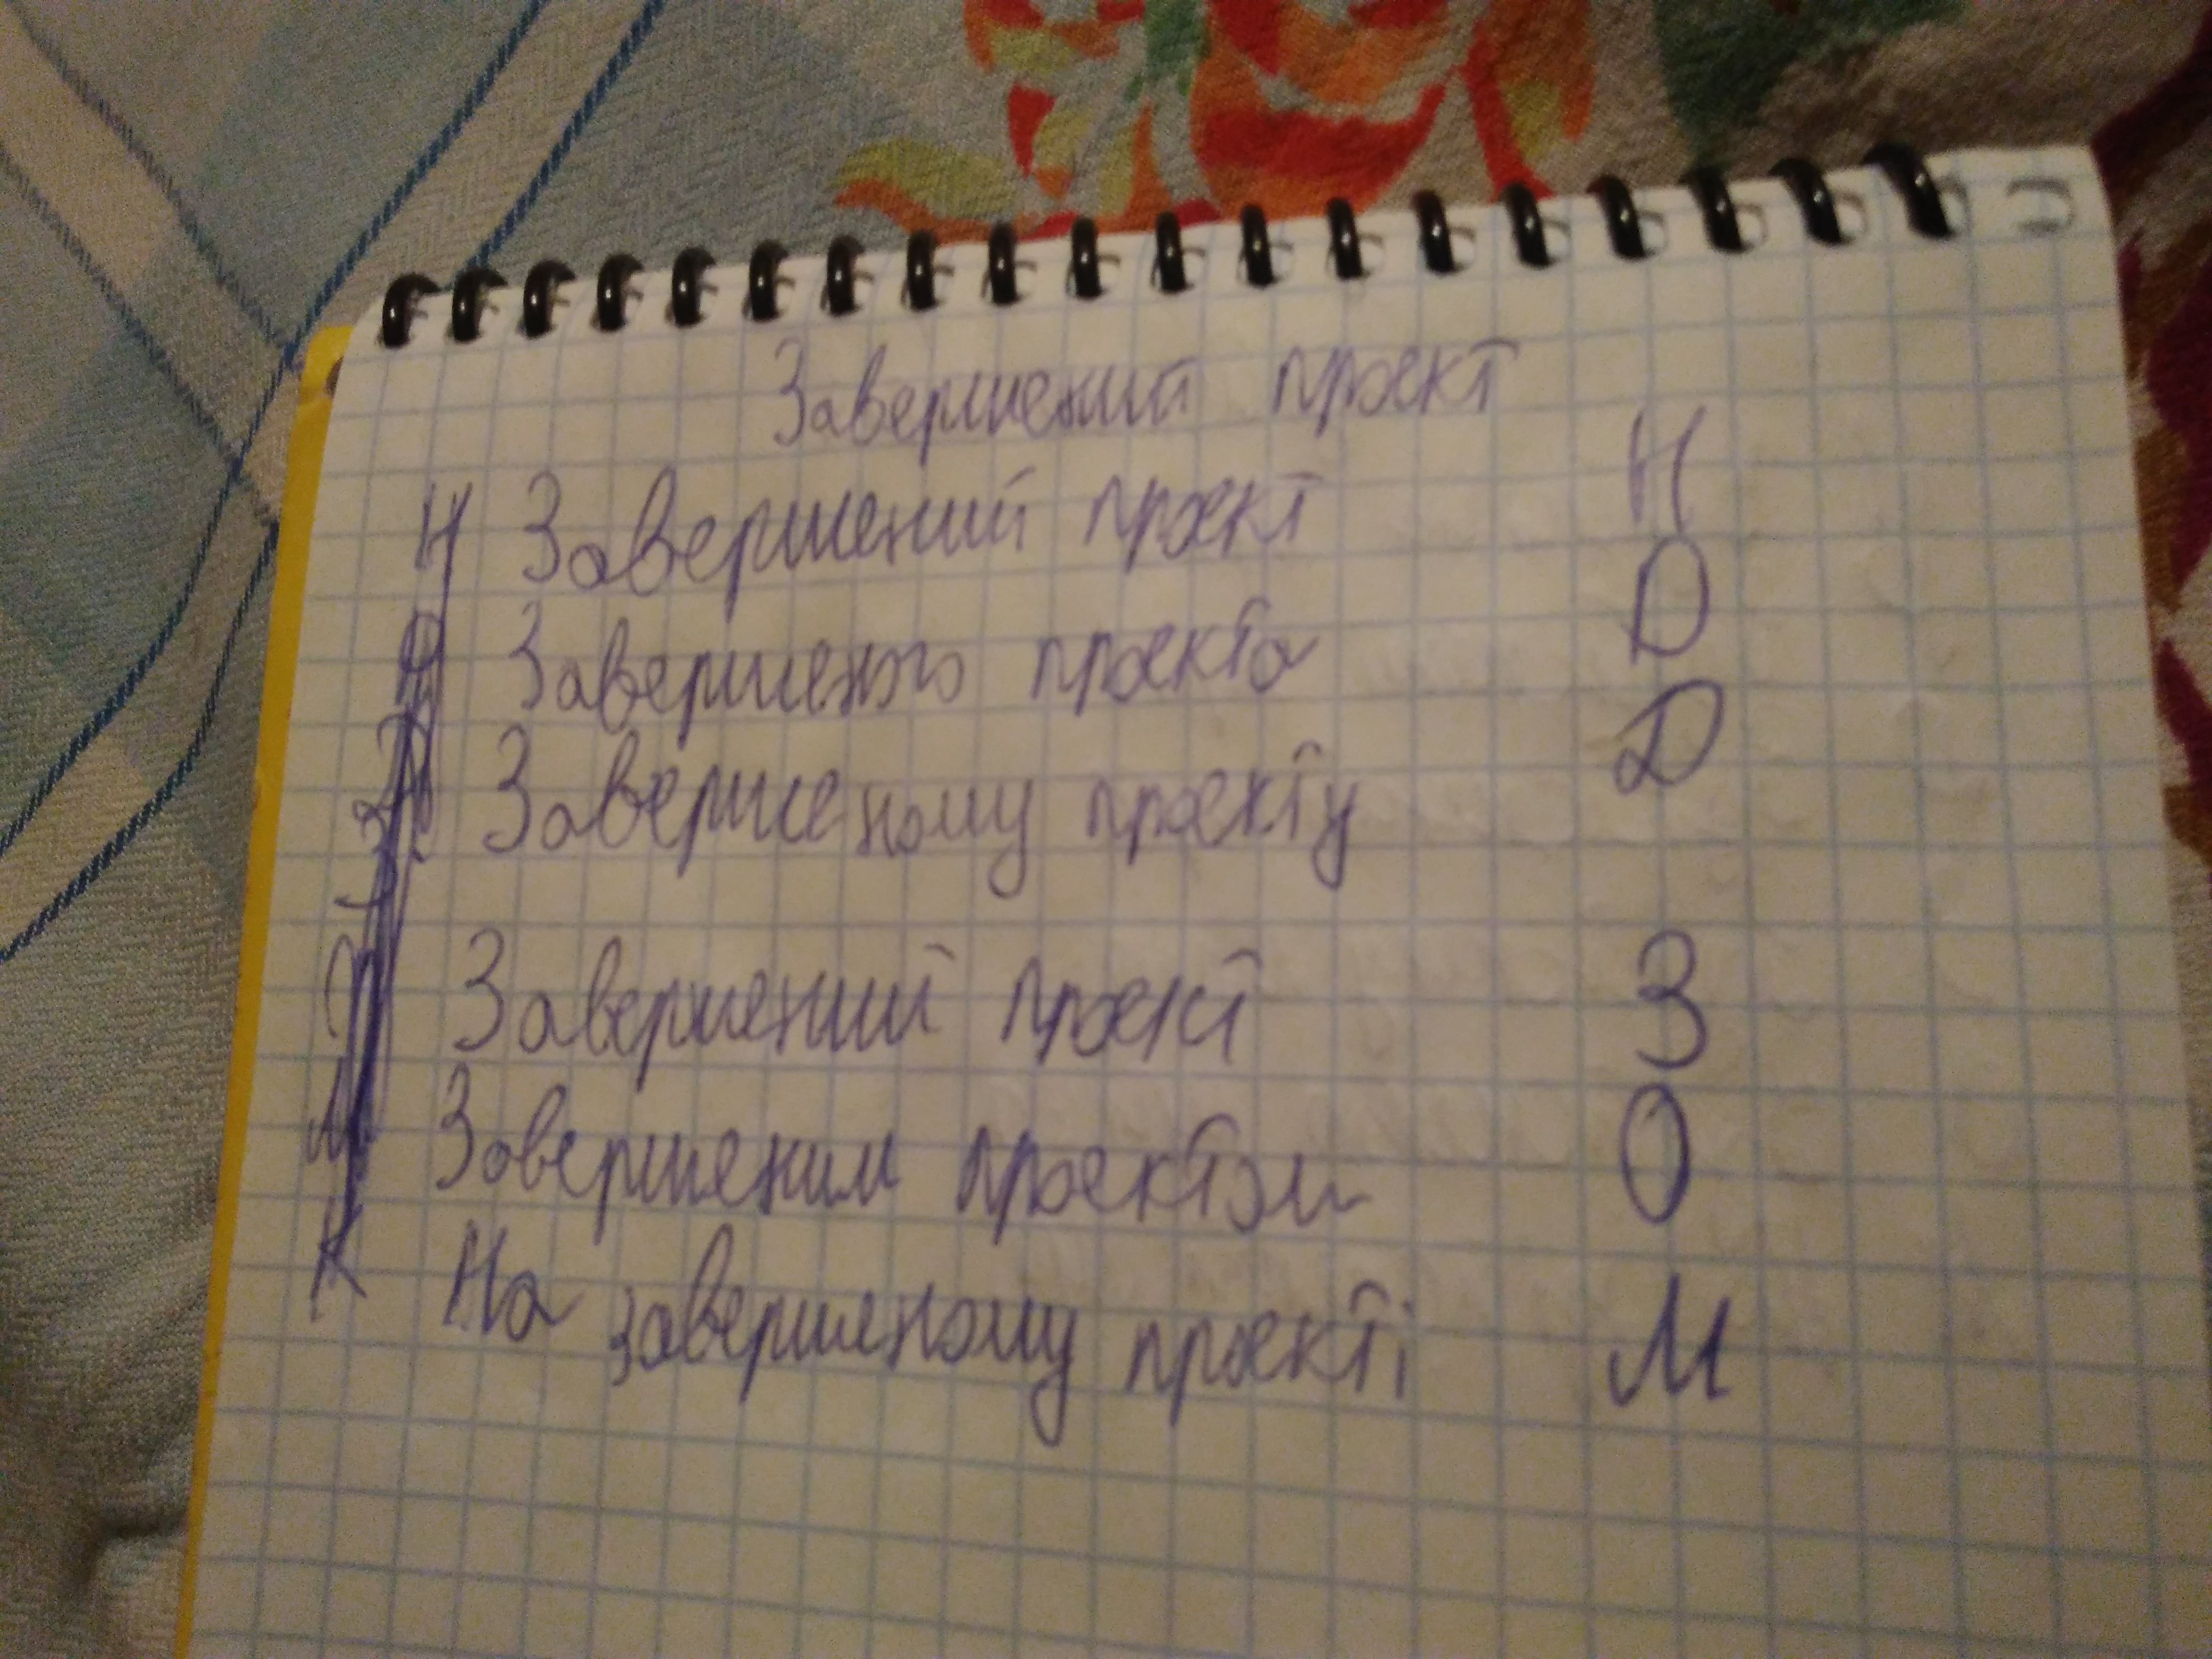 Завершений проєкт
Н Завершений проєкт Н
Завершеного проєкта Р
Завершеному проєкту Д
Завершений проєкт З
Завершеним проєктом О
К На завершеному проєкті М